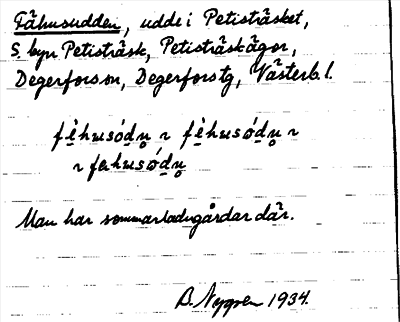 Fähusudden, udde i Petisträsket,
S. byn Petisträsk, Petisträskägor,
Degerforssn, Degerforstg, Västerb.l.
fèhusódn̥ ~ fèhusódn̥ ~
~ fæhusódn̥
Man har sommarladugårdar där.
B. Nygren 1934.